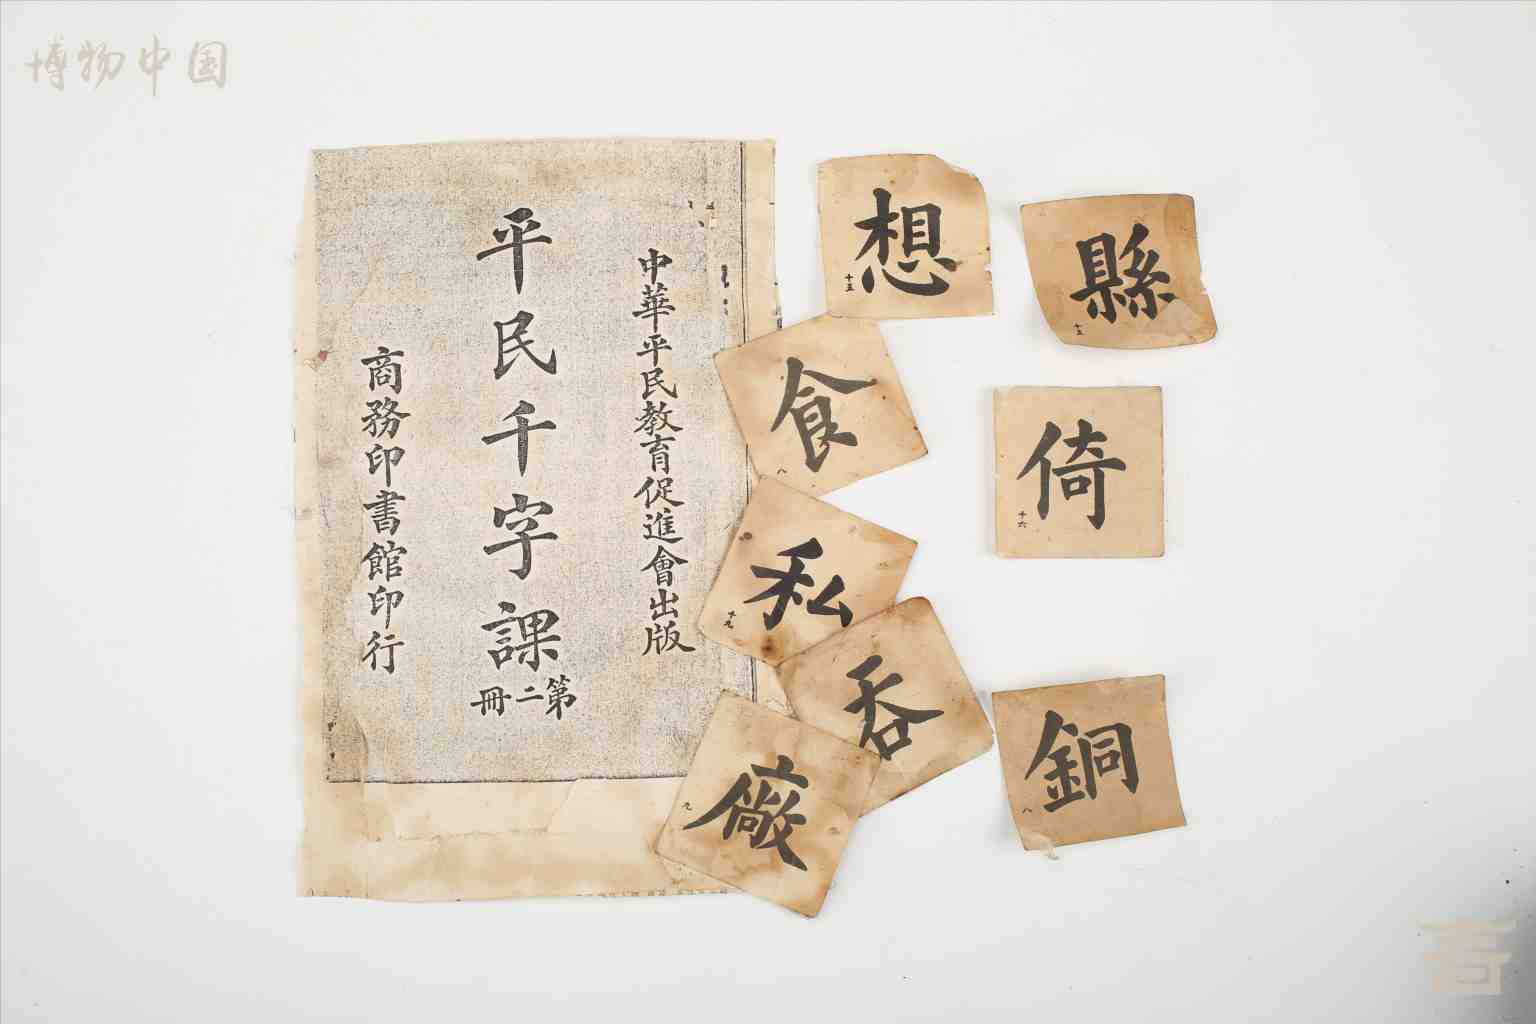 博物中国
中華平民教育促進會出版
平民千字課
第二冊
商務印書館印行
想
十五
縣
十五
食
八
倚
十六
私
十九
吞
銅
八
廠
九